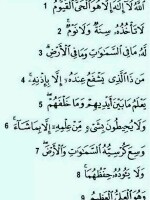 اللَّهُ لَا إِلَٰهَ إِلَّا هُوَ الْحَيُّ الْقَيُّومُ 1
لَا تَأْخُذُهُ سِنَةٌ وَلَا نَوْمٌ 2
لَهُ مَا فِي السَّمَاوَاتِ وَمَا فِي الْأَرْضِ 3
مَن ذَا الَّذِي يَشْفَعُ عِندَهُ إِلَّا بِإِذْنِهِ 4
يَعْلَمُ مَا بَيْنَ أَيْدِيهِمْ وَمَا خَلْفَهُمْ 5
وَلَا يُحِيطُونَ بِشَيْءٍ مِّنْ عِلْمِهِ إِلَّا بِمَا شَاءَ 6
وَسِعَ كُرْسِيُّهُ السَّمَاوَاتِ وَالْأَرْضَ 7
وَلَا يَئُودُهُ حِفْظُهُمَا 8
وَهُوَ الْعَلِيُّ الْعَظِيمُ 9